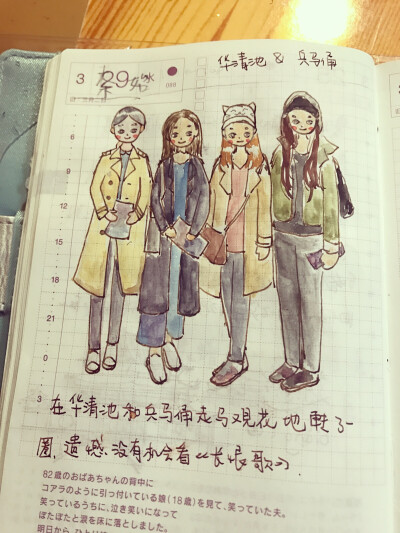 华清池 & 兵马俑
3 29
089
6
9
12
15
18
21
0
3
在华清池和兵马俑走马观花地转了一
圈,遗憾没有机会看《长恨歌》.
82歳のおばあちゃんの背中に
コアラのように引っ付いている娘(18歳)を見て、笑っていた夫。
笑っているうちに、泣き笑いになって
ぽたぽたと涙を床に落としました。